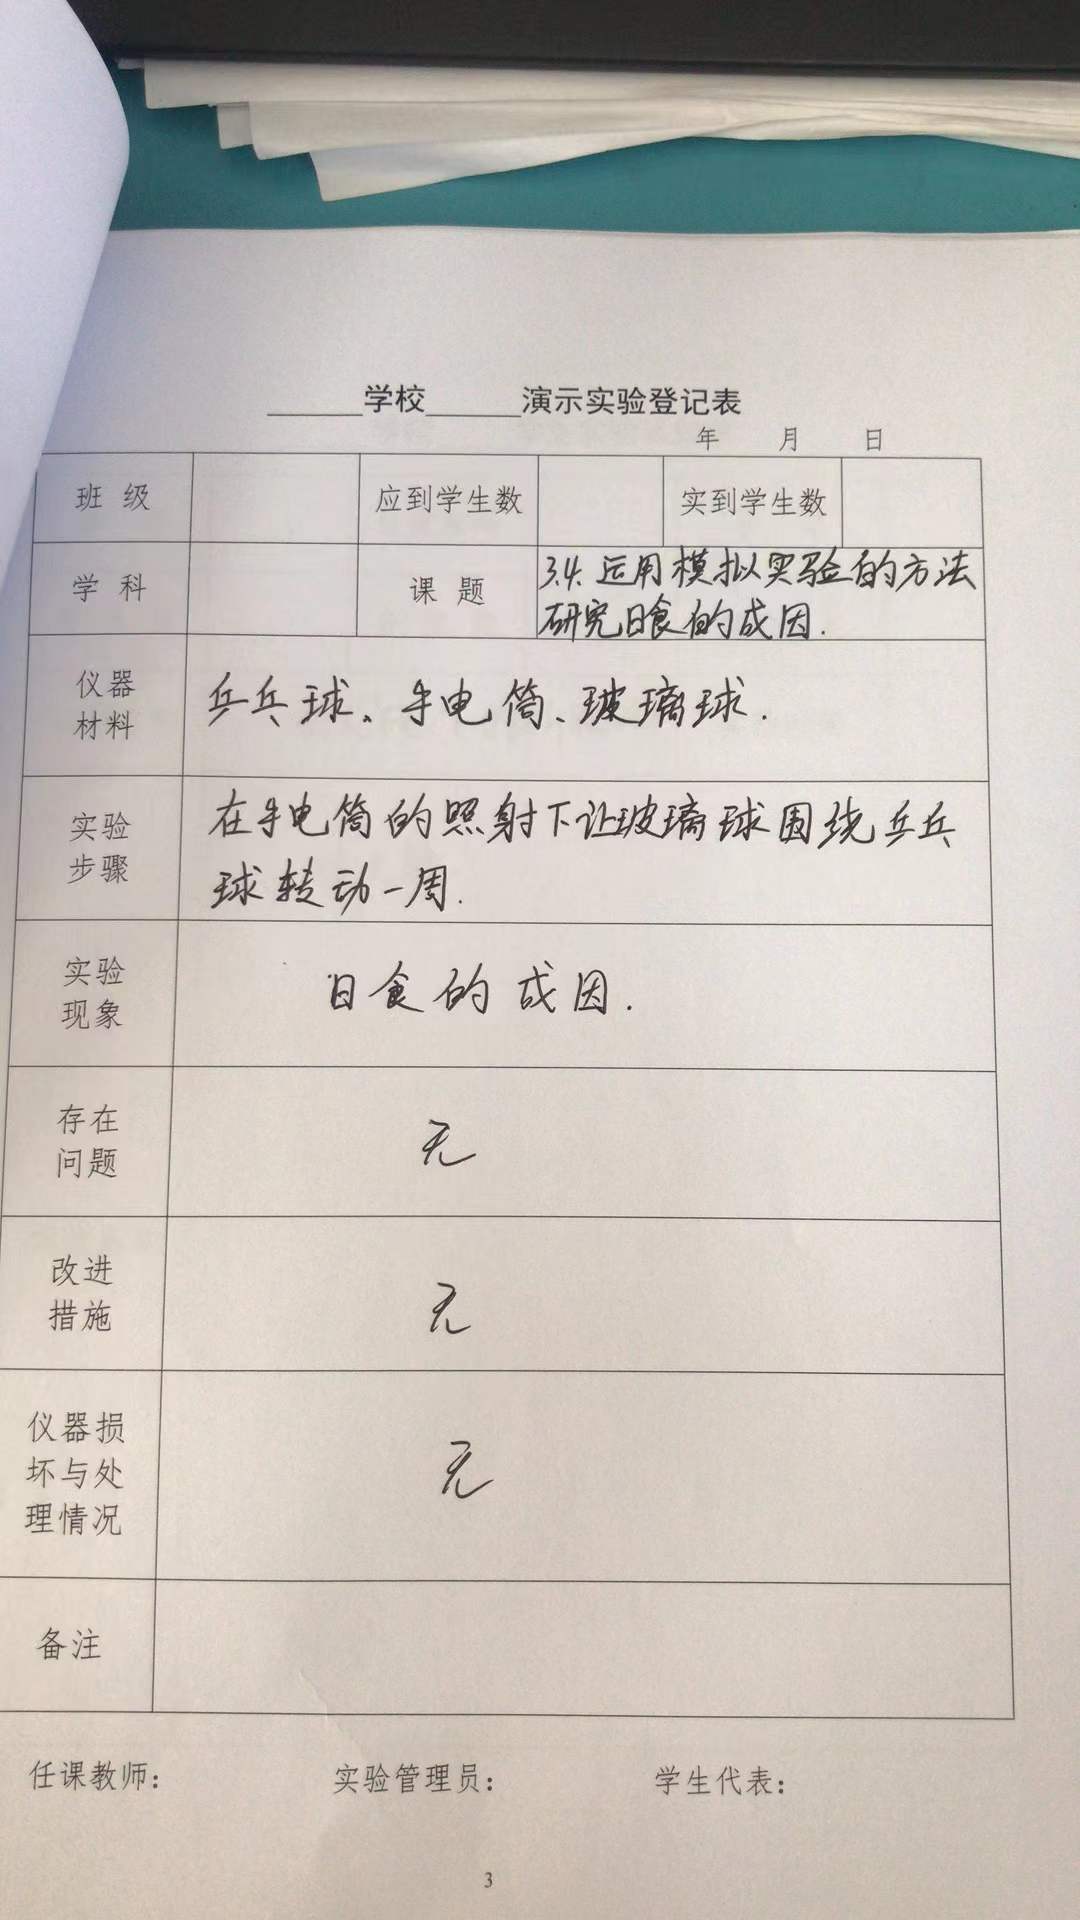 ______学校______演示实验登记表
年 月 日
班 级 应到学生数 实到学生数
学 科 课 题 3.4.运用模拟实验的方法
研究日食的成因.
仪器
材料
乒乓球、手电筒、玻璃球.
实验
步骤
在手电筒的照射下让玻璃球围绕乒乓
球转动一周.
实验
现象
日食的成因.
存在
问题
无
改进
措施
无
仪器损
坏与处
理情况
无
备注
任课教师: 实验管理员: 学生代表:
3